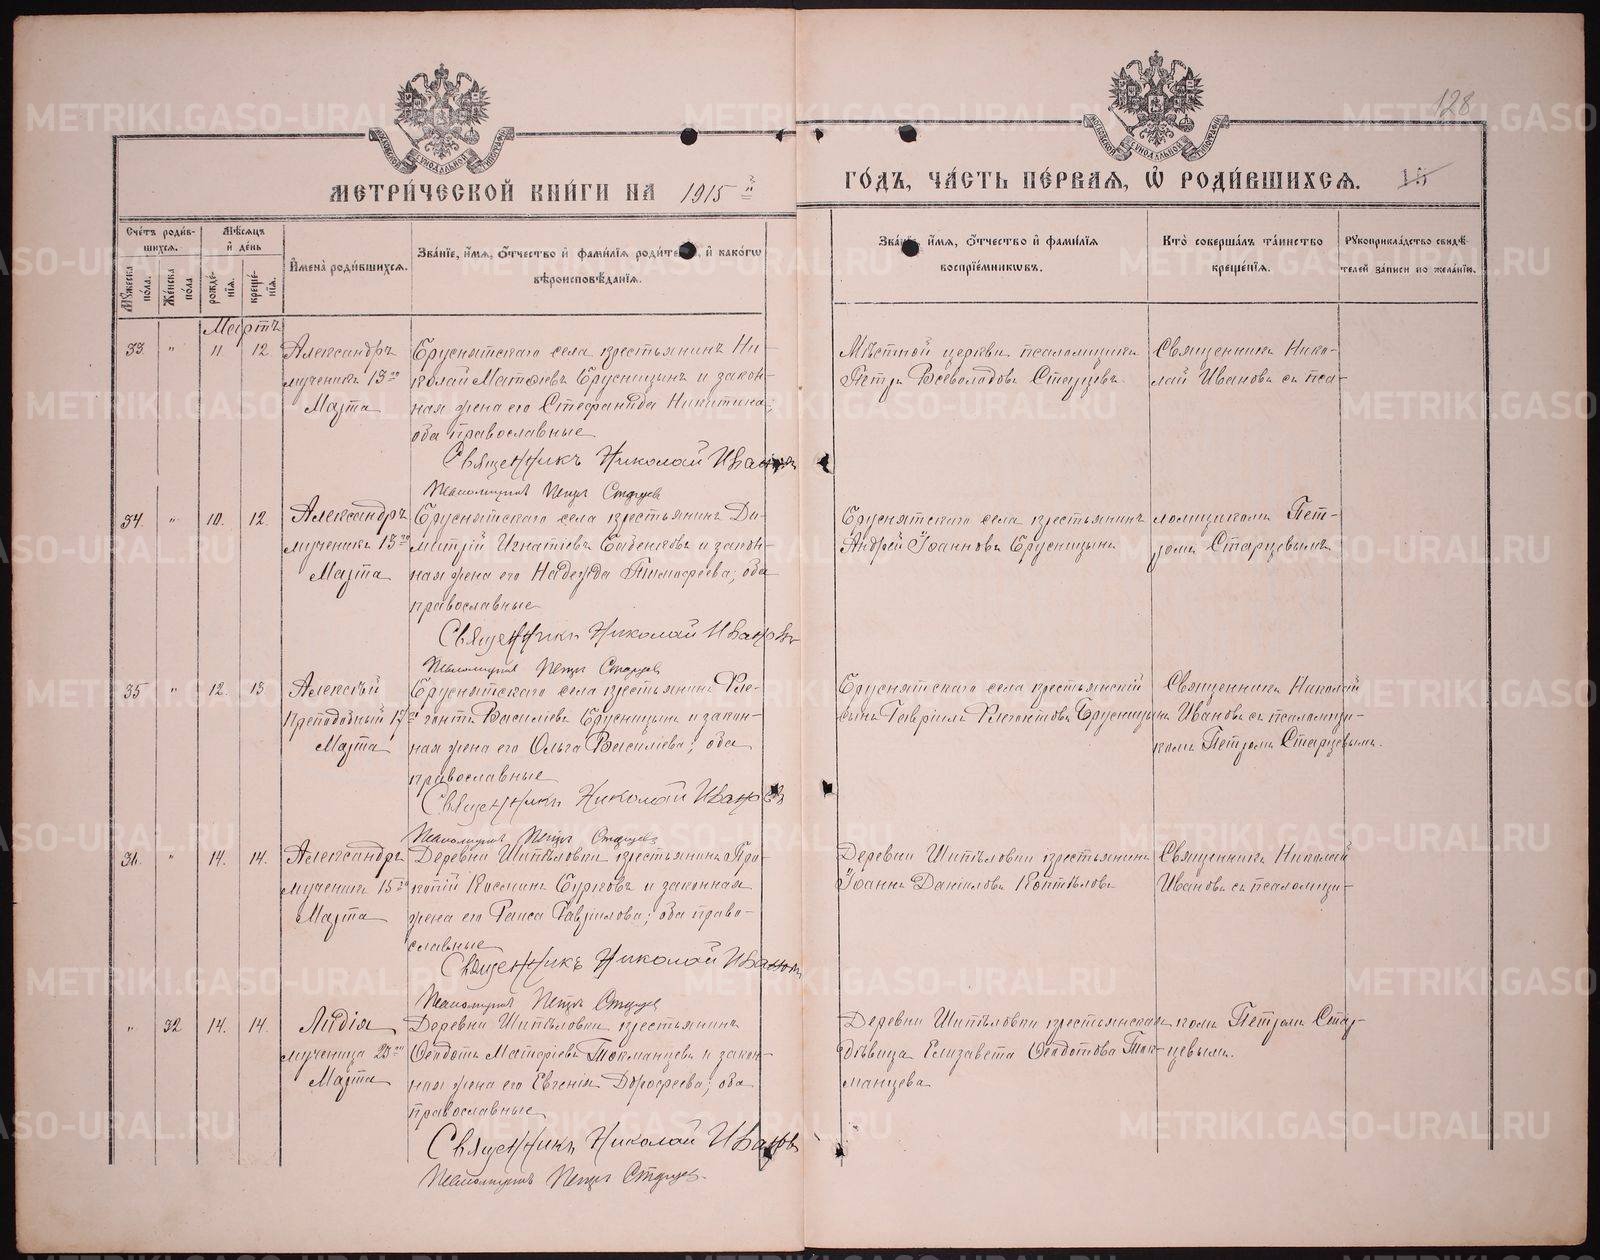 128
МЕТРИ́ЧЕСКОЙ КНИ́ГИ НА 1915 й
ГО́ДЪ, ЧА́СТЬ ПЕ́РВАЯ, Ѡ РОДИ́ВШИХСЯ.
Сче́тъ роди́вшихся.
Му́жеска по́ла.
Же́нска по́ла
Мѣ́сяцъ и де́нь
рожде́нїя.
креще́нїя.
Имена̀ роди́вшихся.
Зва́нїе, и́мя, о́тчество и фами́лїя роди́телей, и како́гѡ
вѣроисповѣ́данїя.
Зва́нїе, и́мя, о́тчество и фами́лїя
воспрїе́мникѡвъ.
Кто̀ соверша́лъ та́инство
креще́нїя.
Рукоприкла́дство свидѣ́телей за́писи по жела́нїю.
Мартъ
33. " 11. 12.
Александръ
мученикъ 13го
Марта
Бруснятскаго села крестьянинъ Ни-
колай Матѳіевъ Брусницынъ и закон-
ная жена его Стефанида Никитина;
оба православные
Священникъ Николай Ивановъ
Псаломщикъ Петръ Старцевъ
Мѣстной церкви псаломщикъ
Петръ Всеволодовъ Старцевъ.
Священникъ Нико-
лай Ивановъ съ пса-
34. " 10. 12.
Александръ
мученикъ 13го
Марта
Бруснятскаго села крестьянинъ Ди-
митрій Игнатіевъ и закон-
ная жена его Надежда Тимофеева; оба
православные
Священникъ Николай Ивановъ
Псаломщикъ Петръ Старцевъ
Бруснятскаго села крестьянинъ
Андрей Іоанновъ Брусницынъ
ломщикомъ Пет-
ромъ Старцевымъ
35 " 12. 13
Алексѣй
Преподобный 17го
Марта
Бруснятскаго села крестьянинъ Фле-
гонтъ Василіевъ Брусницынъ и закон-
ная жена его Ольга Василіева; оба
православные
Священникъ Николай Ивановъ
Псаломщикъ Петръ Старцевъ
Бруснятскаго села крестьянскій
сынъ Гавріилъ Флегонтовъ Брусницынъ
Священникъ Николай
Ивановъ съ псаломщи-
комъ Петромъ Старцевымъ.
36. " 14. 14.
Александръ
мученикъ 15го
Марта
Деревни Шипѣловки крестьянинъ Про-
копій Косминъ Бурковъ и законная
жена его Раиса Гавріилова; оба право-
славные
Священникъ Николай Ивановъ
Псаломщикъ Петръ Старцевъ
Деревни Шипѣловки крестьянинъ
Іоаннъ Даніиловъ Коптѣловъ
Священникъ Николай
Ивановъ съ псаломщи-
" 32 14. 14.
Лидія
мученица 23го
Марта
Деревни Шипѣловки крестьянинъ
Ѳеодотъ Матѳіевъ Токманцевъ и закон-
ная жена его Евгенія Дорофеева; оба
православные
Священникъ Николай Ивановъ
Псаломщикъ Петръ Старцевъ.
Деревни Шипѣловки крестьянская
дѣвица Елизавета Ѳеодотова Ток-
манцева
комъ Петромъ Стар-
цевымъ.
METRIKI.GASO-URAL.RU